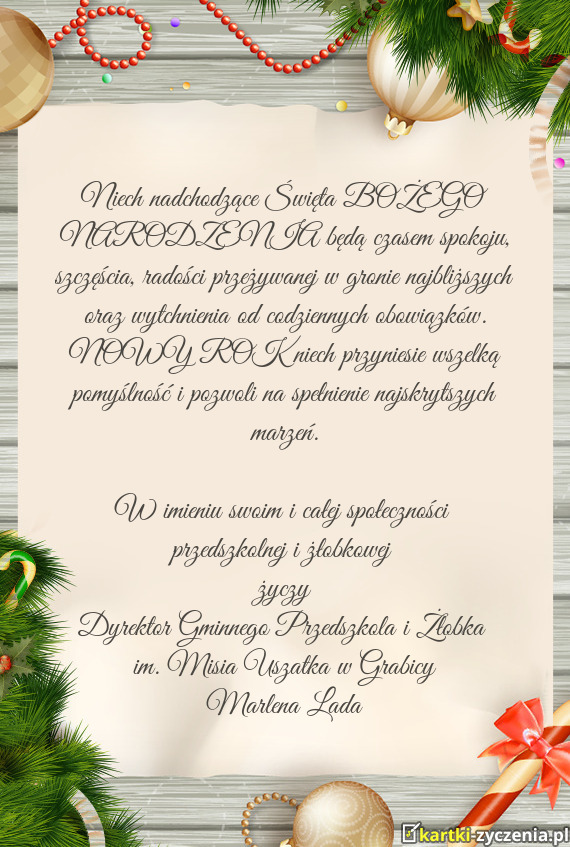 Niech nadchodzące Święta BOŻEGO
NARODZENIA będą czasem spokoju,
szczęścia, radości przeżywanej w gronie najbliższych
oraz wytchnienia od codziennych obowiązków.
NOWY ROK niech przyniesie wszelką
pomyślność i pozwoli na spełnienie najskrytszych
marzeń.
W imieniu swoim i całej społeczności
przedszkolnej i żłobkowej
życzy
Dyrektor Gminnego Przedszkola i Żłobka
im. Misia Uszatka w Grabicy
Marlena Lada
kartki-zyczenia.pl